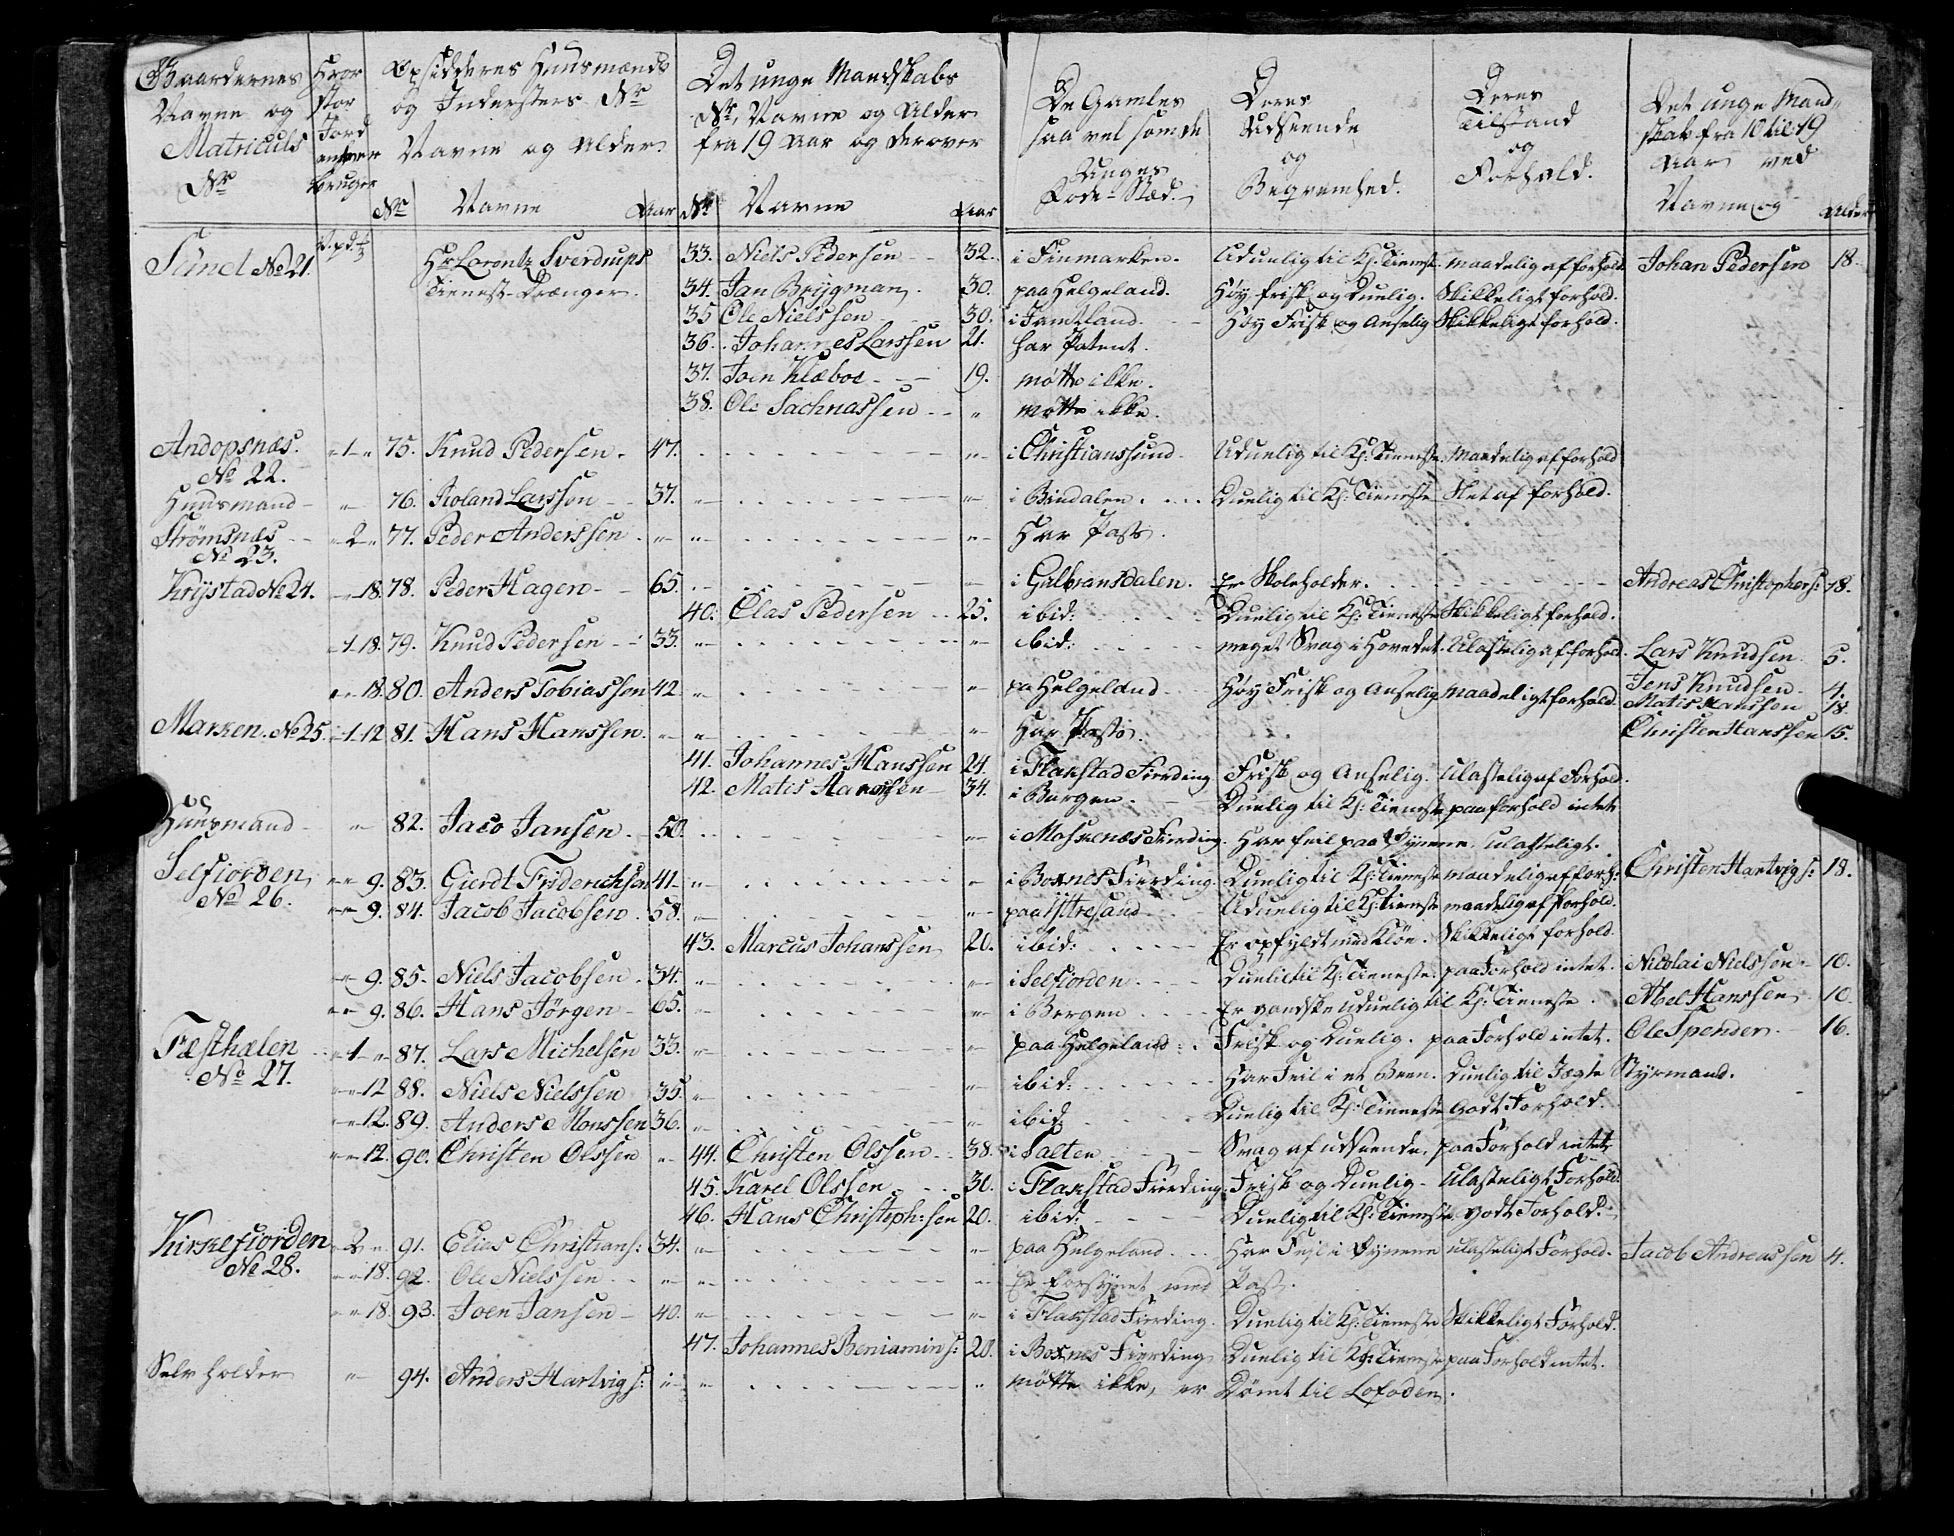 Gaardernes Navne og Matriculs No | Hvor stor Jord enhver bruger | Opsidderes Huusmænds og Indersters No Navne og Alder. | Det unge Mandskabs No, Navne og Alder fra 19 Aar og derover | De Gamles saavelsom de Unges Føde-Stæd. | Deres Udseende og Beqvemhed. | Deres Tilstand og Forhold. | Det unge Mandskab fra 10 til 19 Aar ved Navne og Alder
No | Navne | Aar | No | Navne | Aar
Sund No 21. | Hr Lorentz Sverdrups | 33. Niels Pedersen | 32. | i Finmarken. | Uduelig til Kg: Tieneste | maadelig af forhold | Johan Pedersen | 18.
Tienest-Drænger. | 34. Jan Brygman. | 30. | paa Helgeland. | Høy frisk og Duelig. | Skikkeligt forhold.
35 Ole Nielssen | 30. | i Jemtland. | Høy Frisk og Anselig | Skikkeligt forhold.
36. Johannes Larssen | 21. | har Patent.
37. Joen Klæboe | 19. | møtte ikke.
38. Ole Sachnassen | „ | møtte ikke.
Andopsnæs. No 22. | „ 1 „ | 75. Knud Pedersen. | 47. | i Christianssund | Uduelig til Kg: Tieneste | Maadelig af forhold
Huusmand | „ | 76. Roland Larssen | 37. | i Bindalen. | Duelig til Kg: Tieneste | Slet af forhold.
Strømsnæs No 23. | „ 2 „ | 77. Peder Anderssen | „ | Har Pass.
Krystad No 24. | 18. | 78. Peder Hagen | 65. | i Gulbransdalen. | Er Skoleholder. | Andreas Christophers: | 18.
40. Clas Pedersen | 25. | ibid: | Duelig til Kg: Tieneste | Skikkeligt forhold.
1 18. | 79. Knud Pedersen | 33. | ibid: | meget Svag i Hovedet. | Ulastelig af forhold. | Lars Knudsen | 5.
18. | 80. Anders Tobiassen | 42 | pa Helgeland | Høy Frisk og Anselig | maadeligt forhold. | Jens Knudsen | 4.
Matis Hanssen | 18.
Marken. No 25. | 1 12 | 81. Hans Hanssen. | „ | Har Pass. | Christen Hanssen | 15.
41. Johannes Hanssen | 24. | i Flakstad Fierding | Frisk og Anselig. | Ulastelig af Forhold.
42. Matis Hanssen | 34. | i Bergen. | Duelig til Kg: Tieneste | paa forhold intet
Huusmand | „ | 82. Jaco Jansen. | 50. | i Moskenæs Fierding. | Har feil paa Øynene. | Ulasteligt.
Selfiorden No 26. | 9. | 83. Gierdt Friderichsen | 41 | i Boxnes Fierding. | Duelig til Kg: Tieneste | maadelig af forh: | Christen Hartvigs: | 18.
9. | 84. Jacob Jacobsen. | 58. | paa Ytresand | Uduelig til Kg: Tieneste | maadelig af forhold.
43. Marcus Johanssen | 20. | ibid: | Er opfyldt med Kløe. | Skikkeligt forhold.
9. | 85. Niels Jacobsen. | 34. | i Selfiorden | Duelig til Kg: Tieneste. | paa Forhold intet. | Nicolai Nielssen | 10.
9. | 86. Hans Jörgen | 65. | i Bergen | Er gandske uduelig til Kg: Tieneste. | Abel Hanssen | 10.
Fæsthælen No 27. | 1 „ | 87. Lars Michelsen | 33. | paa Helgeland | Frisk og Duelig. | paa Forhold intet. | Ole Spender. | 16.
12 | 88. Niels Nielssen | 35. | ibid: | Har Feil i et Been. | Duelig til Jægte Styrmand.
12. | 89. Anders Monssen | 36. | ibid: | Duelig til Kg: Tieneste | Godt Forhold.
12. | 90. Christen Olssen | „ | 44. Christen Olssen | 38. | i Salten | Svag af udseende. | paa Forhold intet
45. Karel Olssen | 30. | i Flakstad Fierding. | Frisk og Duelig | Ulasteligt Forhold.
46. Hans Christoph:sen | 20. | ibid: | Duelig til Kg: Tieneste | godt Forhold.
Kirkefiorden No 28. | 2 „ | 91. Elias Christians: | 34. | paa Helgeland | Har Feil i Øynene | ulasteligt Forhold. | Jacob Andreassen | 4.
18. | 92. Ole Nielssen | „ | Er forsynet med Pass.
18. | 93. Joen Jansen | 40. | i Flakstad Fierding. | Duelig til Kg: Tieneste | Skikkeligt Forhold.
47. Johannes Beniamins: | 20. | i Boxnes Fierding | Duelig til Kg: Tieneste | paa Forhold intet.
Selv holder | „ | 94. Anders Hartvigs: | „ | møtte ikke, er Dømt til Lofoden.